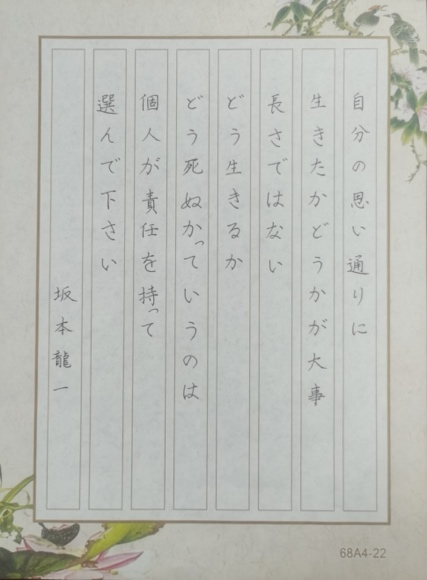 自分の思い通りに
生きたかどうかが大事
長さではない
どう生きるか
どう死ぬかっていうのは
個人が責任を持って
選んで下さい
坂本龍一
68A4-22